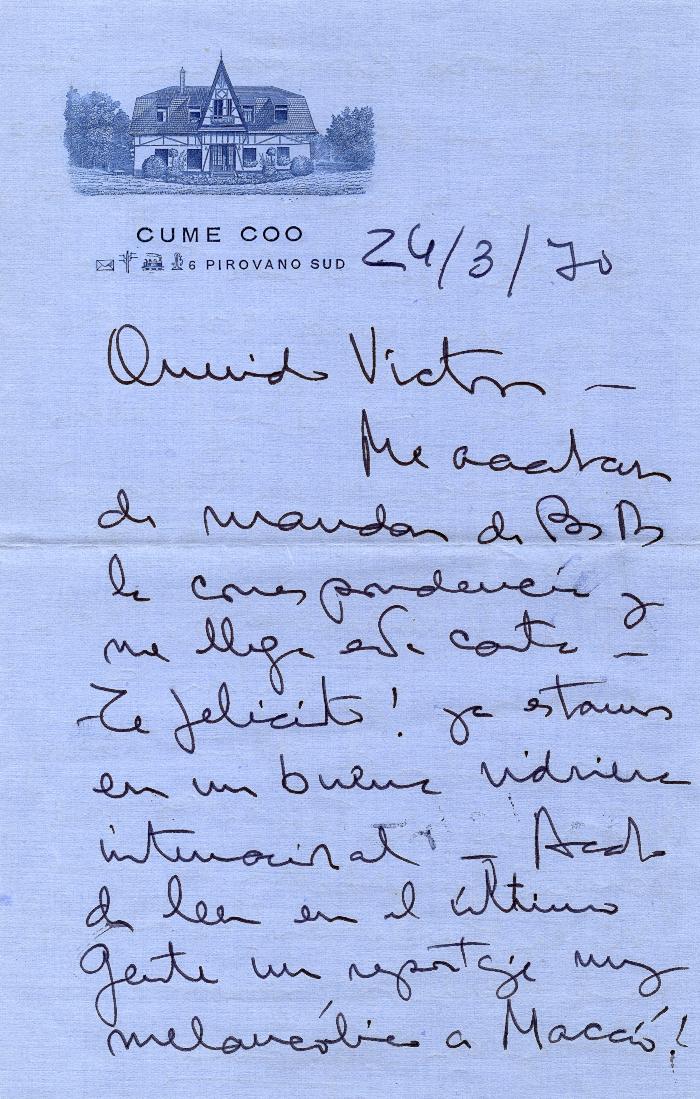 CUME COO
6 PIROVANO SUD
24/3/70
Querido Victor —
Me acaban
de mandar de Bs As
la correspondencia y
me llega esta carta —
Te felicito! ya estamos
en una buena vidriera
internacional — Acabo
de leer en el último
Gente un reportaje muy
melancólico a Macció!